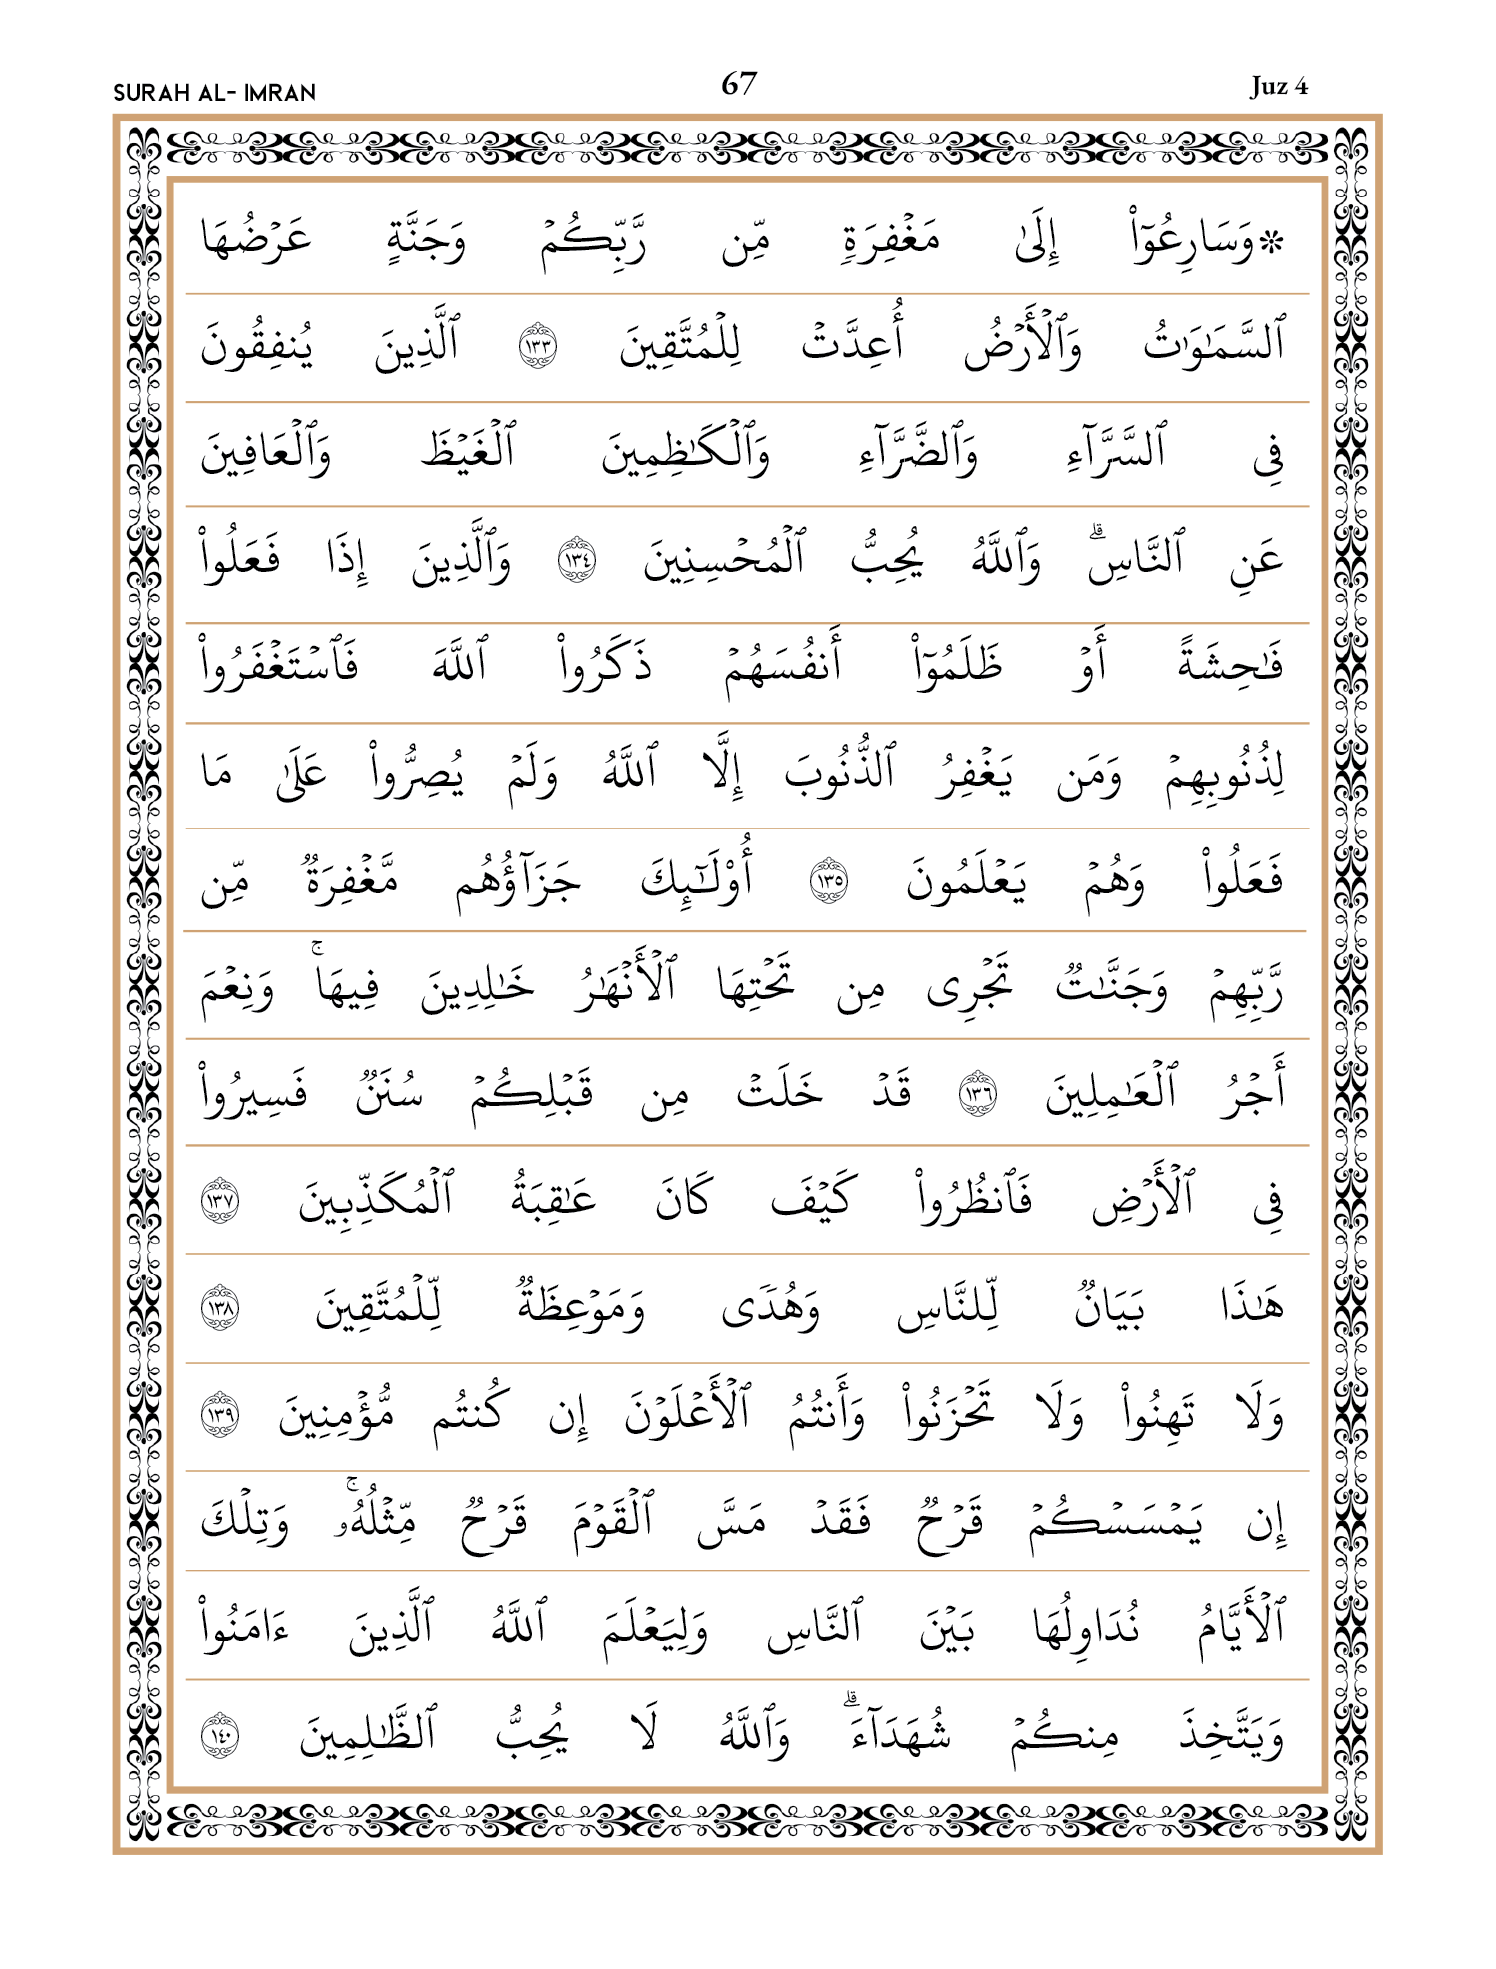 SURAH AL- IMRAN 67 Juz 4
۞وَسَارِعُوٓا۟ إِلَىٰ مَغْفِرَةٍۢ مِّن رَّبِّكُمْ وَجَنَّةٍ عَرْضُهَا
ٱلسَّمَـٰوَٰتُ وَٱلْأَرْضُ أُعِدَّتْ لِلْمُتَّقِينَ ١٣٣ ٱلَّذِينَ يُنفِقُونَ
فِى ٱلسَّرَّآءِ وَٱلضَّرَّآءِ وَٱلْكَـٰظِمِينَ ٱلْغَيْظَ وَٱلْعَافِينَ
عَنِ ٱلنَّاسِ ۗ وَٱللَّهُ يُحِبُّ ٱلْمُحْسِنِينَ ١٣٤ وَٱلَّذِينَ إِذَا فَعَلُوا۟
فَـٰحِشَةً أَوْ ظَلَمُوٓا۟ أَنفُسَهُمْ ذَكَرُوا۟ ٱللَّهَ فَٱسْتَغْفَرُوا۟
لِذُنُوبِهِمْ وَمَن يَغْفِرُ ٱلذُّنُوبَ إِلَّا ٱللَّهُ وَلَمْ يُصِرُّوا۟ عَلَىٰ مَا
فَعَلُوا۟ وَهُمْ يَعْلَمُونَ ١٣٥ أُو۟لَـٰٓئِكَ جَزَآؤُهُم مَّغْفِرَةٌۭ مِّن
رَّبِّهِمْ وَجَنَّـٰتٌۭ تَجْرِى مِن تَحْتِهَا ٱلْأَنْهَـٰرُ خَـٰلِدِينَ فِيهَا ۚ وَنِعْمَ
أَجْرُ ٱلْعَـٰمِلِينَ ١٣٦ قَدْ خَلَتْ مِن قَبْلِكُمْ سُنَنٌۭ فَسِيرُوا۟
فِى ٱلْأَرْضِ فَٱنظُرُوا۟ كَيْفَ كَانَ عَـٰقِبَةُ ٱلْمُكَذِّبِينَ ١٣٧
هَـٰذَا بَيَانٌۭ لِّلنَّاسِ وَهُدًۭى وَمَوْعِظَةٌۭ لِّلْمُتَّقِينَ ١٣٨
وَلَا تَهِنُوا۟ وَلَا تَحْزَنُوا۟ وَأَنتُمُ ٱلْأَعْلَوْنَ إِن كُنتُم مُّؤْمِنِينَ ١٣٩
إِن يَمْسَسْكُمْ قَرْحٌۭ فَقَدْ مَسَّ ٱلْقَوْمَ قَرْحٌۭ مِّثْلُهُۥ ۚ وَتِلْكَ
ٱلْأَيَّامُ نُدَاوِلُهَا بَيْنَ ٱلنَّاسِ وَلِيَعْلَمَ ٱللَّهُ ٱلَّذِينَ ءَامَنُوا۟
وَيَتَّخِذَ مِنكُمْ شُهَدَآءَ ۗ وَٱللَّهُ لَا يُحِبُّ ٱلظَّـٰلِمِينَ ١٤٠